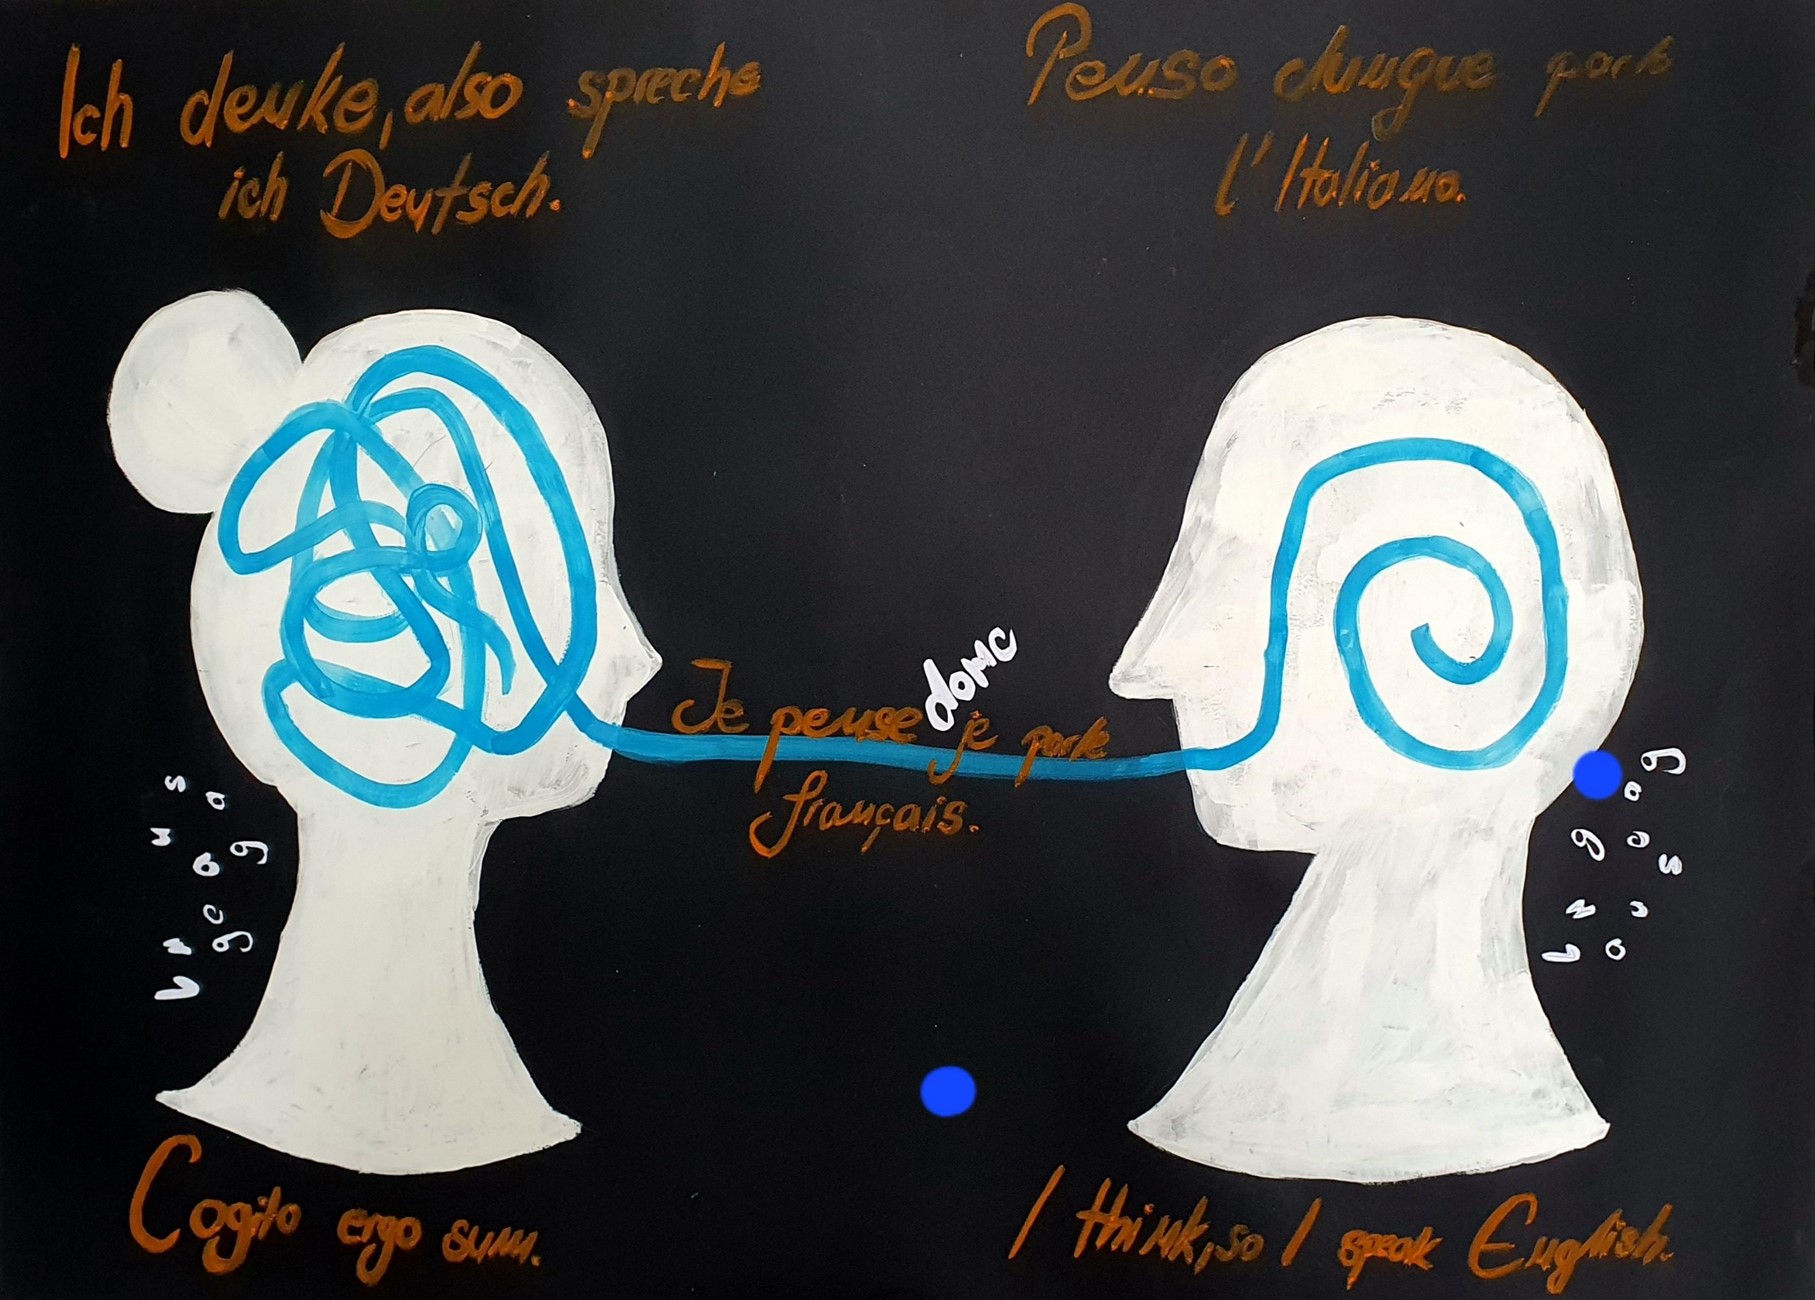 Ich denke, also spreche
ich Deutsch.
Penso dunque parlo
l'Italiano.
Je pense donc je parle
français.
Cogito ergo sum.
I think, so I speak English.